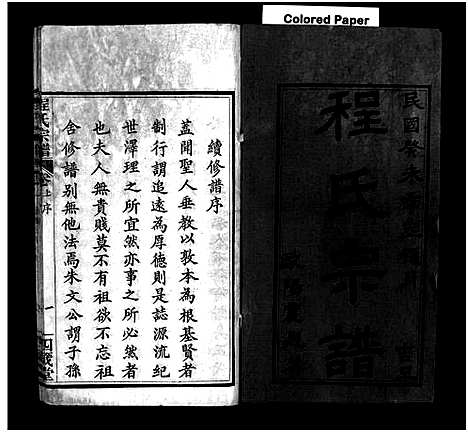 Colored Paper
民國癸未
程氏宗譜
續修譜序
蓋聞聖人垂教以敦本為根基賢者
制行謂追遠為厚德則是誌源流紀
世澤理之所宜然亦事之所必然者
也夫人無貴賤莫不有祖欲不忘祖
舍修譜別無他法焉朱文公謂子孫
程氏宗譜 卷上 序 一